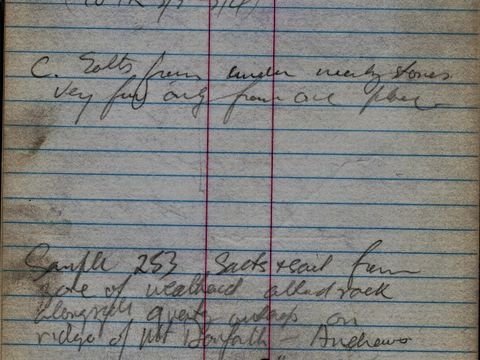 C. Salts from under nearby stones
very few only from one place
Sample 253 Salts & soil from
zone of weathered altered rock
alongside quartz outcrop on
ridge of Mt - Andrews